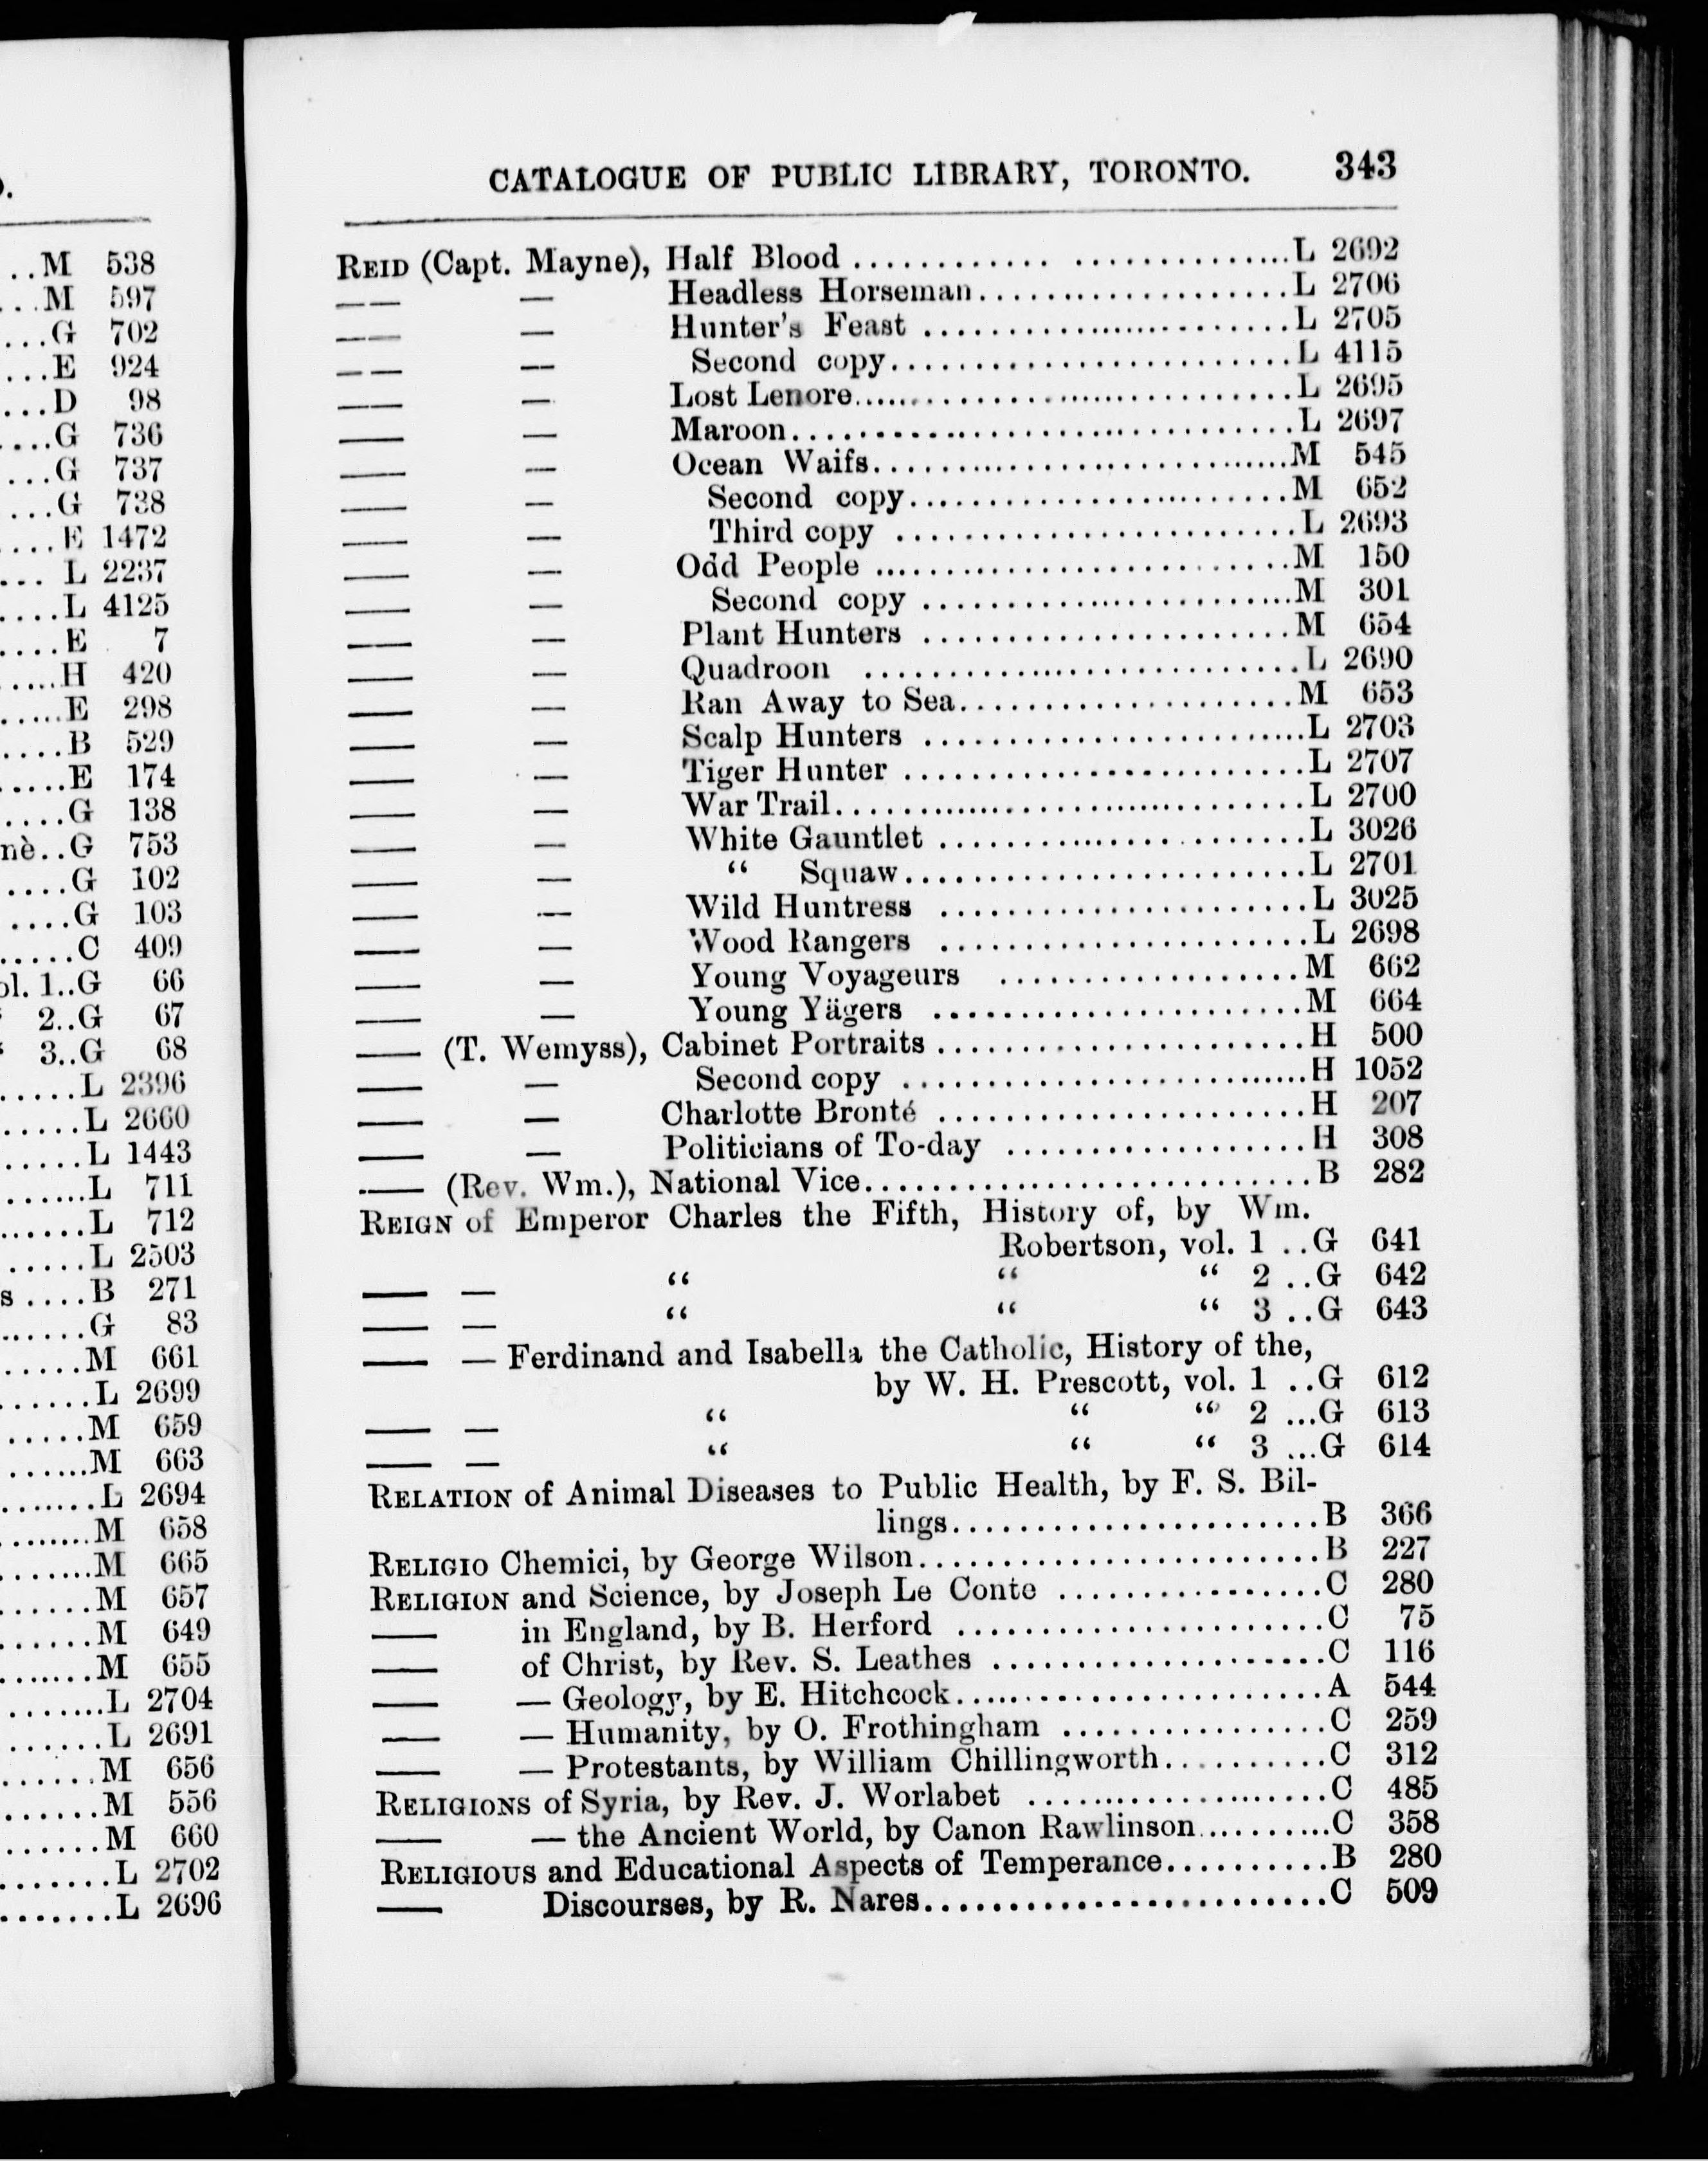 ).
..M 538
...M 597
....G 702
....E 924
....D 98
....G 736
....G 737
....G 738
....E 1472
... L 2237
....L 4125
....E 7
.....H 420
.....E 298
....B 529
.....E 174
....G 138
nè..G 753
....G 102
....G 103
.....C 409
ol. 1..G 66
2..G 67
3..G 68
.....L 2396
.....L 2660
.....L 1443
.......L 711
......L 712
.....L 2503
s ....B 271
......G 83
.....M 661
......L 2699
.....M 659
.......M 663
.......L 2694
........M 658
.......M 665
......M 657
......M 649
.......M 655
........L 2704
.......L 2691
......M 656
......M 556
......M 660
.......L 2702
.......L 2696
CATALOGUE OF PUBLIC LIBRARY, TORONTO. 343
REID (Capt. Mayne), Half Blood ..............................L 2692
—— — Headless Horseman......................L 2706
—— — Hunter's Feast ..........................L 2705
—— — Second copy............................L 4115
—— — Lost Lenore...............................L 2695
—— — Maroon....................................L 2697
—— — Ocean Waifs..............................M 545
—— — Second copy...........................M 652
—— — Third copy ............................L 2693
—— — Odd People ..............................M 150
—— — Second copy ..........................M 301
—— — Plant Hunters ..........................M 654
—— — Quadroon ................................L 2690
—— — Ran Away to Sea........................M 653
—— — Scalp Hunters ...........................L 2703
—— — Tiger Hunter .............................L 2707
—— — War Trail..................................L 2700
—— — White Gauntlet ..........................L 3026
—— — “ Squaw.............................L 2701
—— — Wild Huntress ..........................L 3025
—— — Wood Rangers ..........................L 2698
—— — Young Voyageurs ......................M 662
—— — Young Yägers ..........................M 664
—— (T. Wemyss), Cabinet Portraits ..........................H 500
—— — Second copy .............................H 1052
—— — Charlotte Bronté ..........................H 207
—— — Politicians of To-day .....................H 308
—— (Rev. Wm.), National Vice................................B 282
REIGN of Emperor Charles the Fifth, History of, by Wm.
Robertson, vol. 1 ..G 641
—— — “ “ “ 2 ..G 642
—— — “ “ “ 3 ..G 643
—— — Ferdinand and Isabella the Catholic, History of the,
by W. H. Prescott, vol. 1 ..G 612
—— — “ “ “ 2 ...G 613
—— — “ “ “ 3 ...G 614
RELATION of Animal Diseases to Public Health, by F. S. Bil-
lings..........................B 366
RELIGIO Chemici, by George Wilson.............................B 227
RELIGION and Science, by Joseph Le Conte ...................C 280
—— in England, by B. Herford ..........................C 75
—— of Christ, by Rev. S. Leathes ........................C 116
—— — Geology, by E. Hitchcock...........................A 544
—— — Humanity, by O. Frothingham ...................C 259
—— — Protestants, by William Chillingworth...........C 312
RELIGIONS of Syria, by Rev. J. Worlabet .....................C 485
—— — the Ancient World, by Canon Rawlinson..........C 358
RELIGIOUS and Educational Aspects of Temperance...........B 280
—— Discourses, by R. Nares.............................C 509